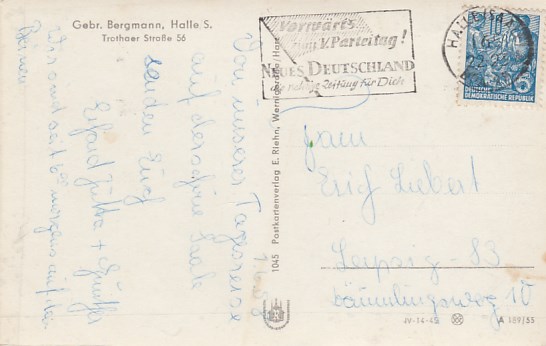 Gebr. Bergmann, Halle S.
Trothaer Straße 56
Vorwärts
zum V. Parteitag!
NEUES DEUTSCHLAND
die richtige Zeitung für Dich
HALLE (SAALE)
DEUTSCHE
DEMOKRATISCHE REPUBLIK
5
Von unserer Tagereise
auf der schöne Saale
senden Euch
Erhard, Jutta + Günther
Wir sind seit 6 morgens auf den
Beinen
1045 Postkartenverlag E. Riehn, Wernigerode/Harz
Fam
Erich Liebert
Leipzig - 83
10
IV-14-45
A 189/55